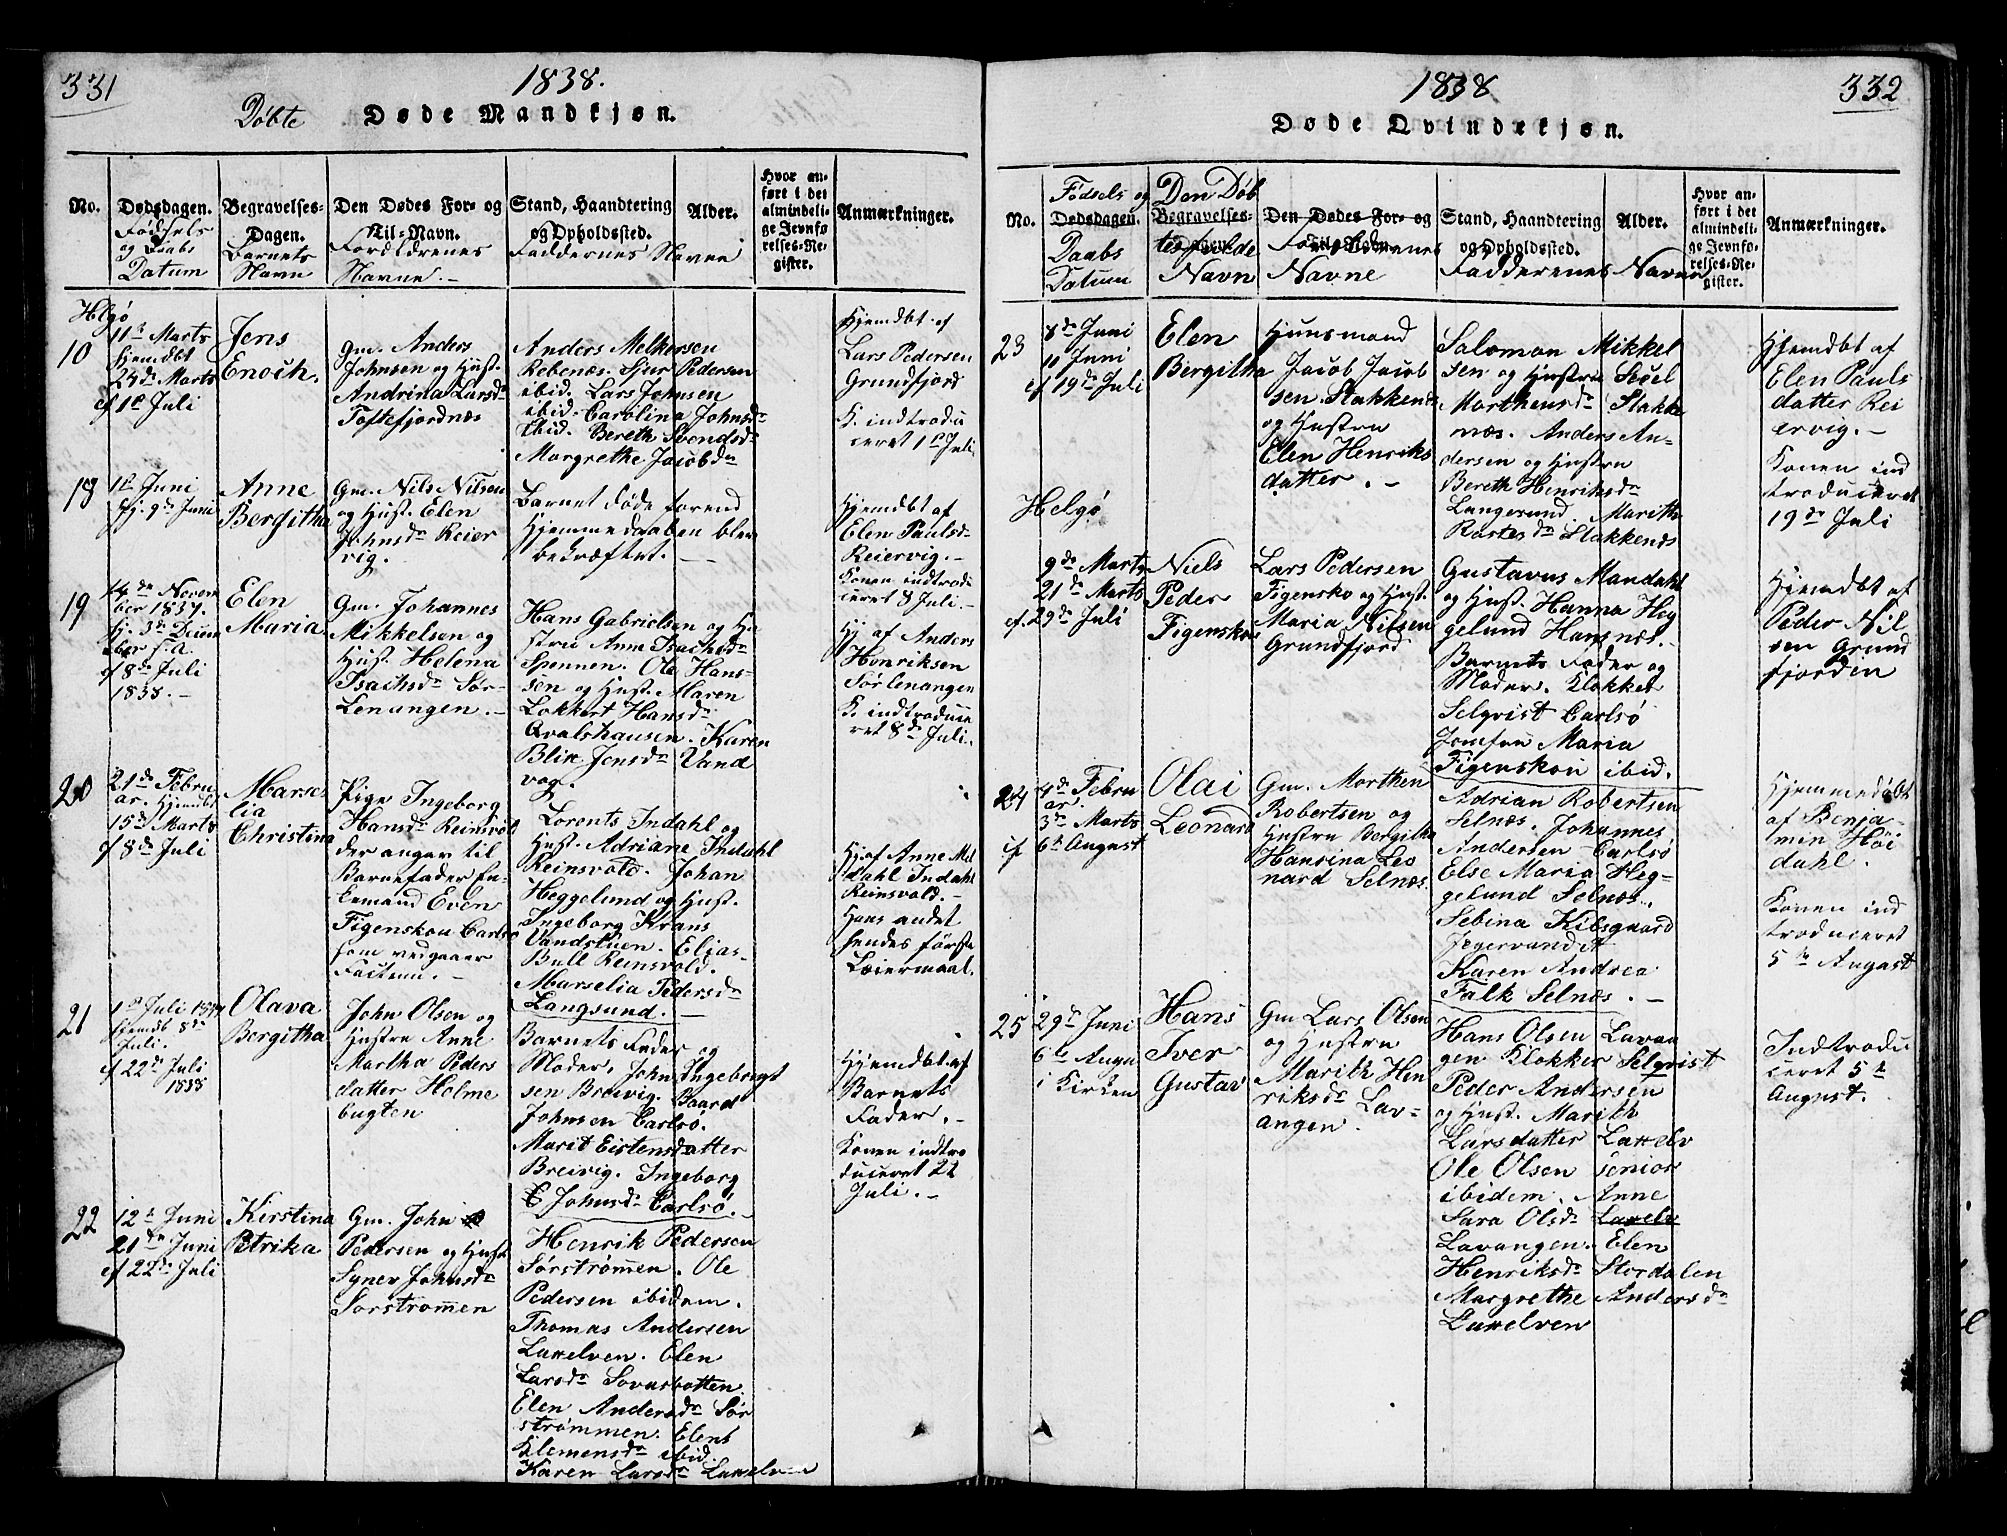 331
1838.
Døbte Døde Mandkjøn.
No.
Dødsdagen.
Fødsels
og Daabs
Datum
Begravelses-
Dagen.
Barnets
Navn
Den Dødes For- og
Til-Navn.
Forældrenes
Navne.-
Stand, Haandtering
og Opholdssted.
Faddernes Navne
Alder.
Hvor an-
ført i det
almindeli-
ge Jevnfø-
relses-Re-
gister.
Anmærkninger.
Helgø
10
11te Marts
hjemdbt
24de Marts
cf 1ste Juli
Jens
Enoch.
Gm. Anders
Johnsen og Hust.
Andrina Larsdr
Toftefjordnæs
Anders Melkersen
Rebenæs. Sjur Pedersen
ibid. Lars Johnsen
ibid. Carolina Johnsdr
ibid. Bereth Svendsdr
Margrethe Jacobdr
Hjemdbt af
Lars Pedersen
Grundfjord
K. indtrodu
ceret 1ste Juli
18
1ste Juni
hj. 9de Juni
Anne
Bergitha
Gm. Nils Nilsen
og Hust. Elen
Johnsdr Reier
vig.
Barnet døde forend
Hjemmedaaben blev
bekræftet. -
Hjemdbt af
Elen Paulsdr
Reiervig.-
Konen indtrodu
ceret 8 Juli.-
19
14de Novem
ber 1837.
hj. 3de Decem
ber s.a.
cf 8de Juli
1838.-
Elen
Maria
Gm. Johannes
Mikkelsen og
Hust. Helena
Isachsdr Sør-
Lenangen.-
Hans Gabrielsen og Hu
stru Ann Isachsdr
Spennen. Ole Hans-
sen og Hust. Maren
Lokkert Hansdr
Qvalshausen. Karen
Blix Jensdr Vand
vog.
Hj af Anders
Henriksen
Sørlenangen
K. indtroduce
ret 8de Juli.
20
21de Febru
ar. Hjemdbt
15de Marts
cf 8de Juli
Marse
lia
Christina
Pige Ingeborg
Hansdr Reinsvold
der angav til
Barnefader En-
kemand Even
Figenskou Carlsø
som vedgaaer
Factum.-
Lorents Indahl og
Hust. Adriane Indahl
Reinsvold. Johan
Heggelund og Hust.
Ingeborg Krans
Vandstuen. Elias
Bull Reinsvold.
Marselia Pedersdr
Langsund.-
Hj af Anne Mel
dahl Indahl
Reinsvold.-
Hans andet
hendes første
Leiermaal.
21
1ste Juli 1837
hjemdb 8de
Juli.
cf 22de Juli
1838
Olava
Bergitha
John Olsen og
Hustru Anne
Martha Peders
datter Holme
bugten
Barnets Fader og
Moder, John Ingebregt
sen Breivig. Baard
Johnsen Carlsø.
Marit Eistensdatter
Breivig. Ingeborg
C Johnsdr Carlsø.-
Hjemdbt af
Barnets
Fader.-
Konen indtro
duceret 22
Juli.-
22
12te Juni
21de Juni
cf 22de Juli
Kirstina
Petrika
Gm. John
Pedersen og Hust
Synev Johnsdr
Sørstrømen
Henrik Pedersen
Sørstrømen. Ole
Pedersen ibidem.
Thomas Andersen
Laxelven. Elen
Larsdr Sovasbotten
Elen Andersdr Sør
strømmen. Elent
Klemensdr ibid.
Karen Larsdr Laxelven
332
1838
Døde Qvindekjøn.
No.
Fødsels og
Dødsdagen.
Daabs
Datum
Den Døb
Begravelses-
tes fulde
Navn
Den Dødes For- og
Forældrenes
Navne
Stand, Haandtering
og Opholdssted.
Faddernes Navne
Alder.
Hvor an-
ført i det
almindeli-
ge Jevnfø-
relses-Re-
gister.
Anmærkninger.
23
8de Juni
11 Juni
cf 19de Juli
Elen
Bergitha
Huusmand
Jacob Jacob
sen Stakkenes
og Hustru
Elen Henriks
datter.-
Salomon Mikkel
sen og Hustru Sedel
Marthensdr Stakke
næs. Anders An-
dersen og Hustru
Bereth Henriksdr
Langesund Marith
Rastesdr Stakkenes
Hjemdbt af
Elen Pauls
datter Rei
ervig.-
Konen ind
troduceret
19de Juli
Helgø
9de Marts
21de Marts
cf. 29de Juli
Niels
Peder
Figenskou
Lars Pedersen
Figensko og Hust.
Maria Nilsen
Grundfjord
Gustavus Mandahl
og Hust. Hanna Heg
gelund Hansnæs.-
Barnets Fader og
Moder. Klokker
Selqvist Carlsø
Jomfru Maria
Figenskou ibid.
Hjemdbt af
Peder Nil
sen Grund
fjorden
24
4de Febru
ar.
3de Marts
cf 6te August
Olai
Leonard
Gm. Morthen
Robertsen og
Hustru Bergitha
Hansina Leo
nard Selnæs.
Adrian Robertsen
Selnæs. Johannes
Andersen Carlsø
Else Maria Heg-
gelund Selnæs.
Sebina Kilsgaard
Jegervandet
Karen Andrea
Falk Selnæs.-
Hjemmedøbt
af Benja-
min Høi
dahl.
Konen ind
troduceret
5te August
25
29de Juni
6te Augu
i Kirken
Hans
Iver
Gustav
Gm Lars Olsen
og Hustru
Marith Hen
riksdr Lav-
angen.
Hans Olsen Lavan
gen Klokker Selqvist
Peder Andersen
og Hust. Marith
Larsdatter Laxelv
Ole Olsen senior
ibidem. Anne
Sara Olsdr Laxelv
Lavangen. Elen
Henriksdr Stordalen
Margrethe Andersdr
Laxelven
Indtrodu
ceret 5te
August.